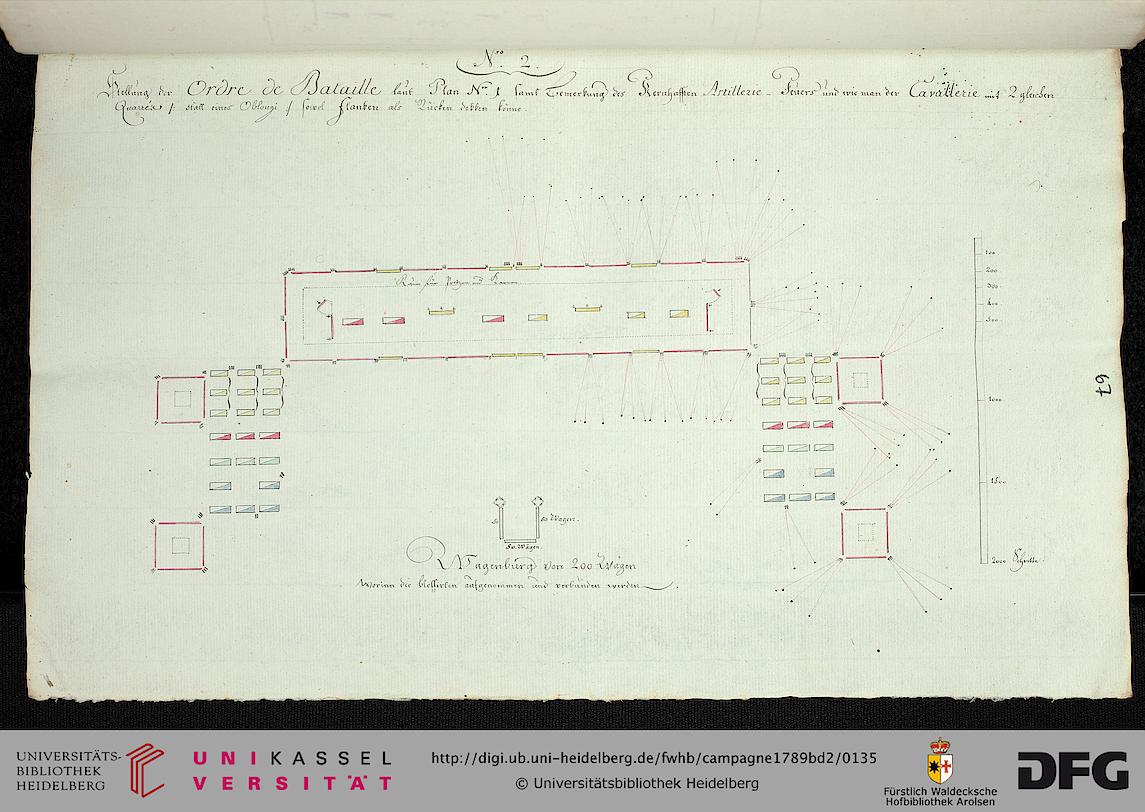 Nro 2.
Stellung der Ordre de Bataille laut Plan Nro 1 samt Bemerkung des Artillerie-Feuers und wie man der Cavallerie mit 2 gleichen
Quarées /: statt eines Oblongi :/ sowol Flanken als Rücken dekken könne.
C
Raum für und Karren
100
200
300
400
500
1000
1500
2000 Schritte
67
50
50 Wägen.
50. Wägen.
Wagenburg von 200 Wägen
Worinn die blessirten aufgenommen und verbunden werden
UNIVERSITÄTS-
BIBLIOTHEK
HEIDELBERG
UNIKASSEL
VERSITÄT
http://digi.ub.uni-heidelberg.de/fwhb/campagne1789bd2/0135
© Universitätsbibliothek Heidelberg
Fürstlich Waldecksche
Hofbibliothek Arolsen
DFG